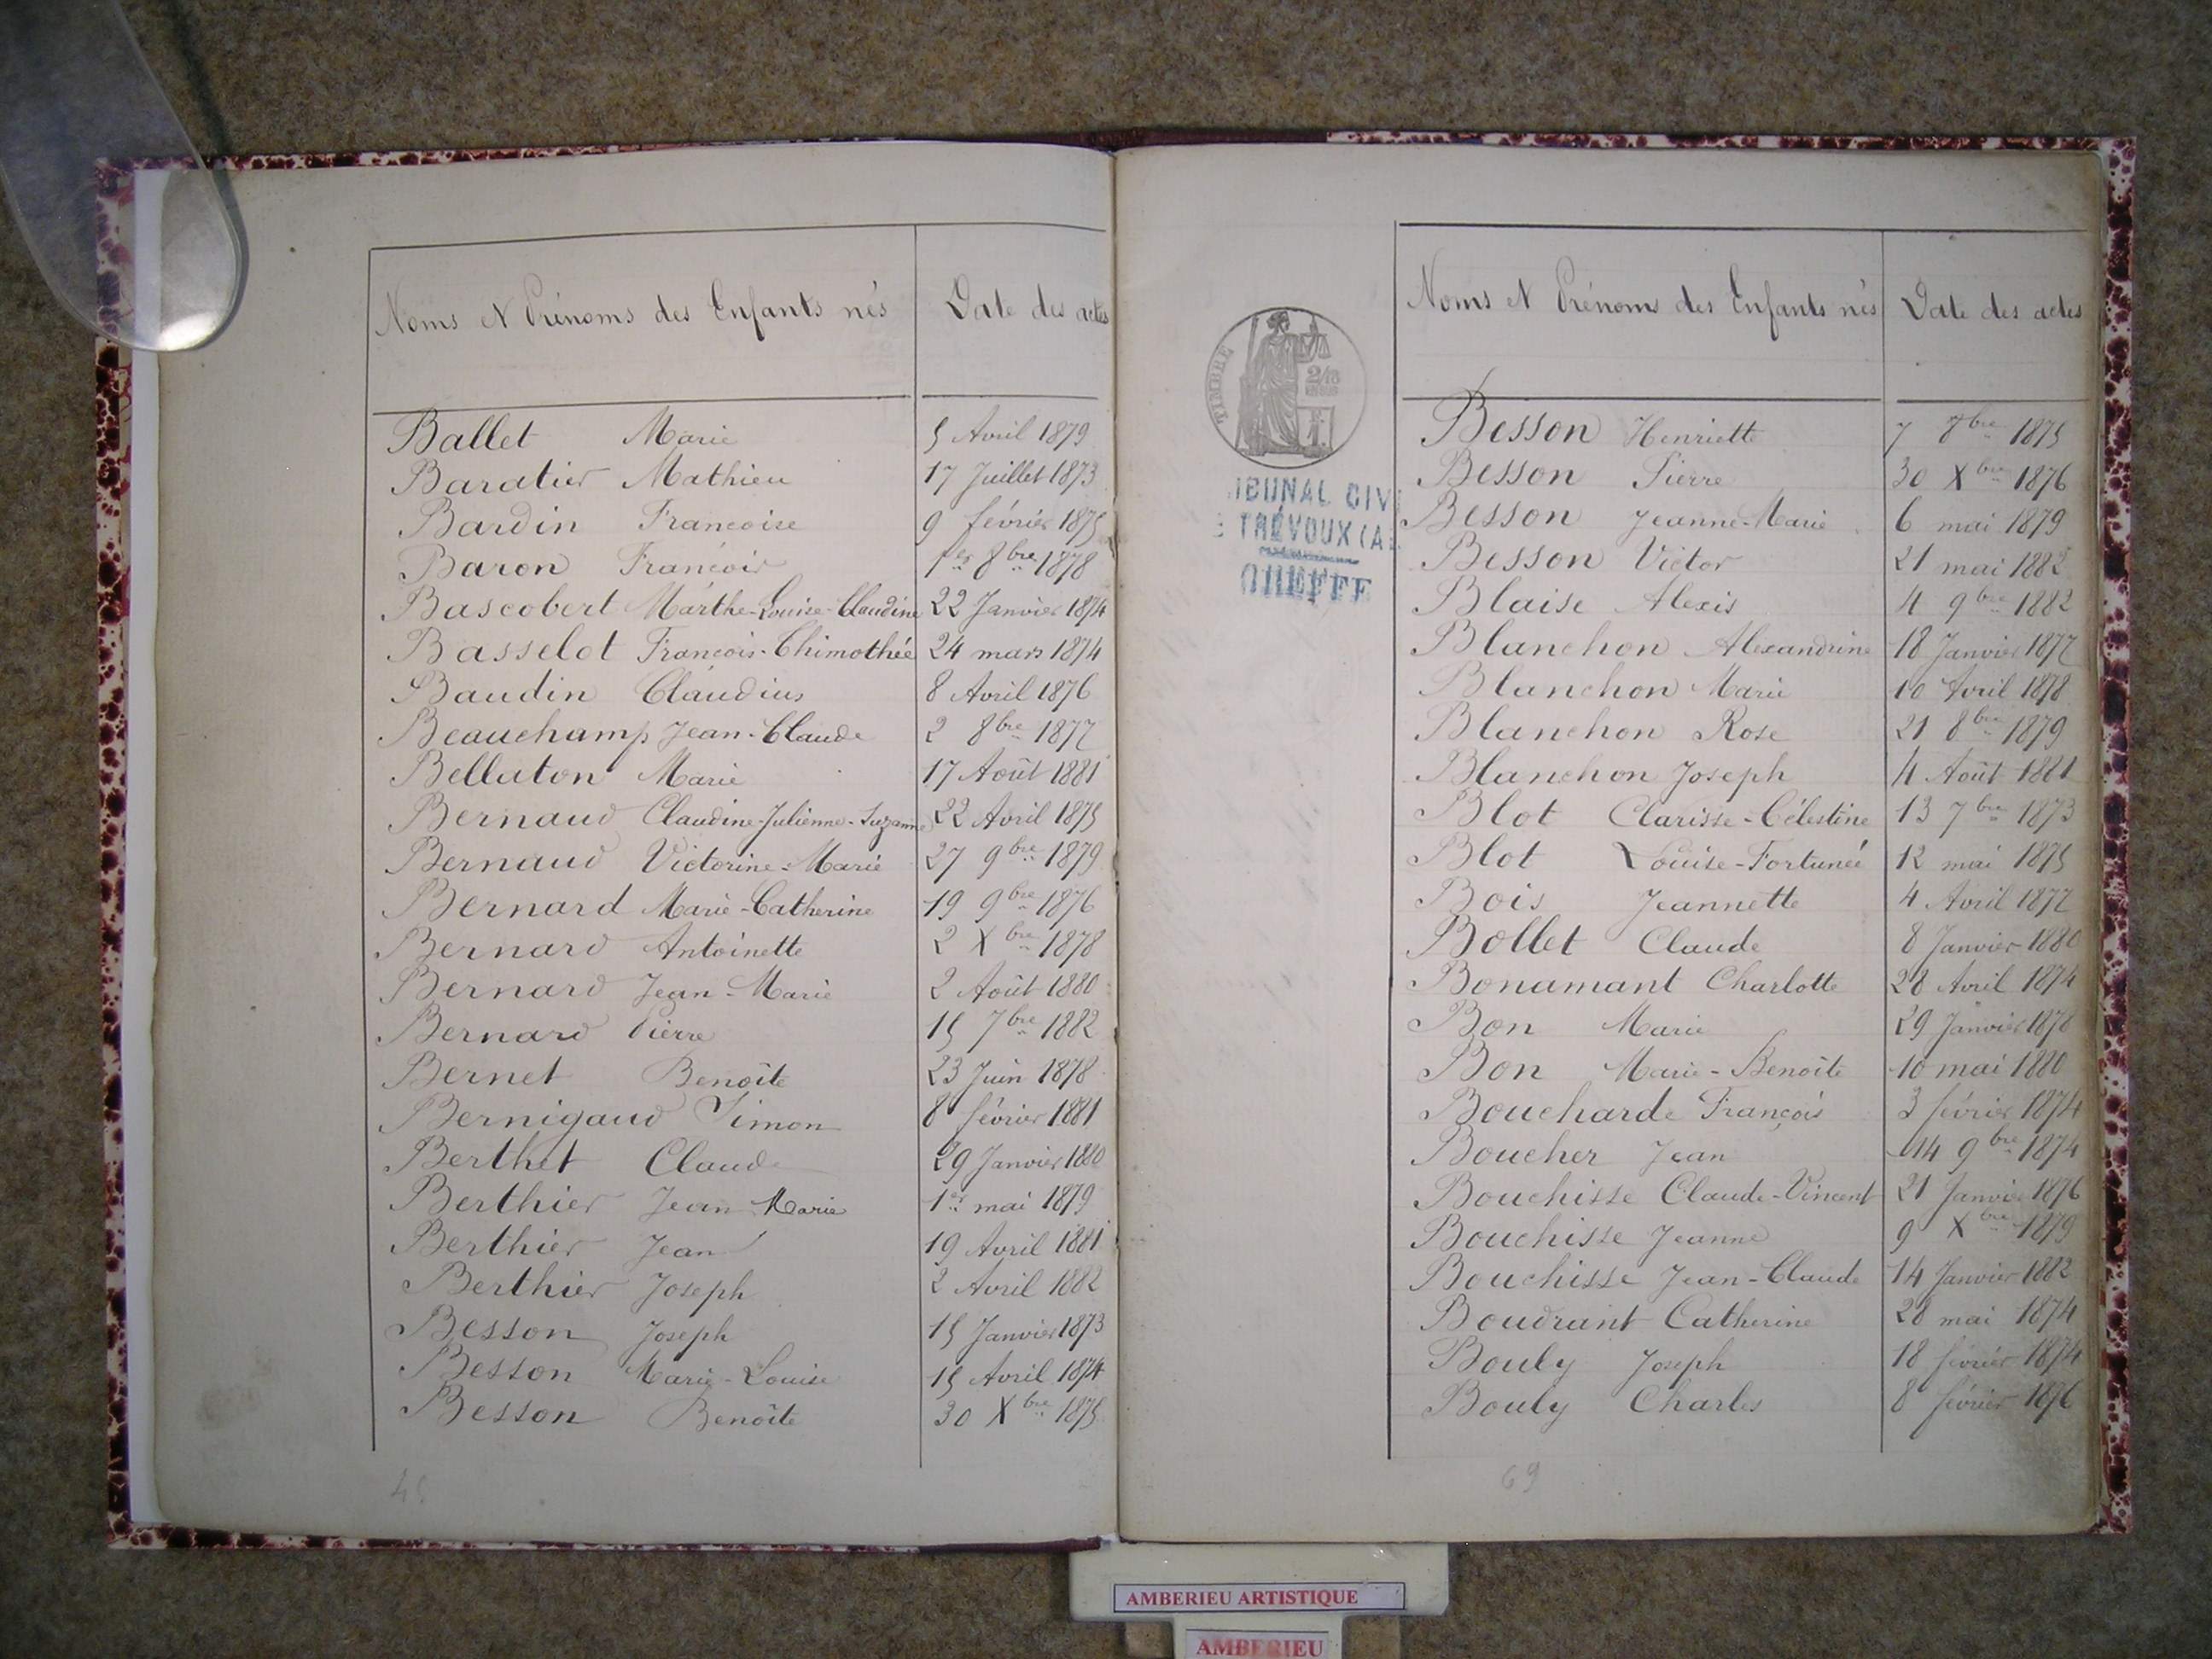 Noms et Prénoms des Enfants nés Date des actes
Ballet Marie 5 Avril 1879
Baratier Mathieu 17 Juillet 1873
Bardin Francoise 9 février 1875
Baron François 1er 8bre 1878
Bascobert Marthe-Louise-Claudine 22 Janvier 1874
Basselot François-Thimothée 24 mars 1874
Baudin Claudius 8 Avril 1876
Beauchamp Jean-Claude 2 8bre 1877
Belluton Marie 17 Août 1881
Bernaud Claudine-Julienne-Suzanne 22 Avril 1875
Bernaud Victorine-Marie 27 9bre 1879
Bernard Marie-Catherine 19 9bre 1876
Bernard Antoinette 2 Xbre 1878
Bernard Jean-Marie 2 Août 1880
Bernard Pierre 15 7bre 1882
Bernet Benoîte 23 Juin 1878
Bernigaud Simon 8 février 1881
Berthet Claude 29 Janvier 1880
Berthier Jean-Marie 1er mai 1879
Berthier Jean 19 Avril 1881
Berthier Joseph 2 Avril 1882
Besson Joseph 15 Janvier 1873
Besson Marie-Louise 15 Avril 1874
Besson Benoîte 30 Xbre 1875
TIMBRE
TRIBUNAL CIV
TRÉVOUX (A
GREFFE
Noms et Prénoms des Enfants nés Date des actes
Besson Henriette 7 8bre 1875
Besson Pierre 30 Xbre 1876
Besson Jeanne-Marie 6 mai 1879
Besson Victor 21 mai 1882
Blaise Alexis 4 9bre 1882
Blanchon Alexandrine 18 Janvier 1877
Blanchon Marie 10 Avril 1878
Blanchon Rose 21 8bre 1879
Blanchon Joseph 4 Août 1881
Blot Clarisse-Célestine 13 7bre 1873
Blot Louise-Fortunée 12 mai 1875
Bois Jeannette 4 Avril 1877
Bollet Claude 8 Janvier 1880
Bonamant Charlotte 28 Avril 1874
Bon Marie 29 Janvier 1878
Bon Marie-Benoîte 10 mai 1880
Boucharde François 3 février 1874
Boucher Jean 14 9bre 1874
Bouchisse Claude-Vincent 21 Janvier 1876
Bouchisse Jeanne 9 Xbre 1879
Bouchisse Jean-Claude 14 Janvier 1882
Boudrant Catherine 28 mai 1874
Bouly Joseph 18 février 1874
Bouly Charles 8 février 1876
69
AMBERIEU ARTISTIQUE
AMBERIEU